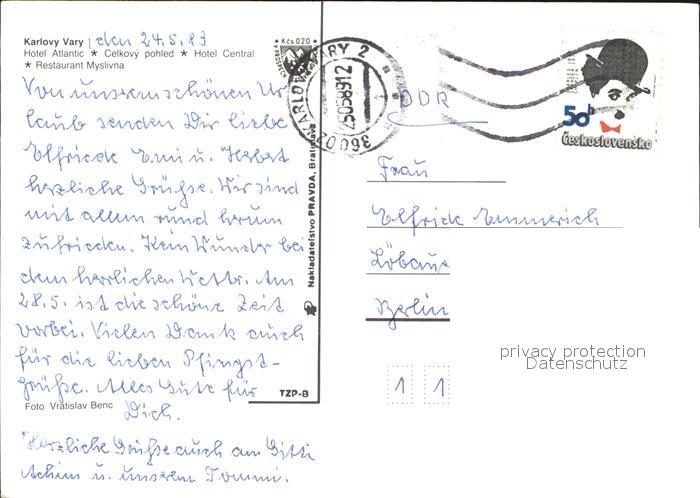 Karlovy Vary , den 24.5.89
Hotel Atlantic ★ Celkový pohled ★ Hotel Central
★ Restaurant Myslivna
Von unserem schönen Ur
laub senden Dir liebe
Elfriede Emi u. Herbst
herzliche Grüße. Wir sind
mit allem rund herum
zufrieden. Kein Wunder bei
dem herrlichen Wettr. Am
28.5. ist die schöne Zeit
vorbei. Vielen Dank auch
für die lieben Pfingst-
grüße. Alles Gute für
Dich.
Foto Vratislav Benc
Herzliche Grüße auch an Gitti
Achim u. unseren Tommi.
Kčs 020
Nakladateľstvo PRAVDA, Bratislava
TZP-B
KARLOVY VARY 2
25.05.89.12
360 02
50h
Československo
DDR
Frau
Elfriede Emmerich
Berlin
1 1
privacy protection
Datenschutz